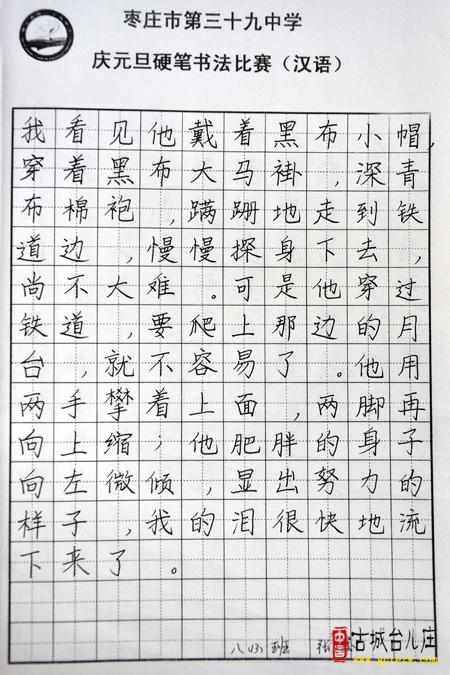 枣庄市第三十九中学
庆元旦硬笔书法比赛（汉语）
我看见他戴着黑布小帽，
穿着黑布大马褂，深青
布棉袍，蹒跚地走到铁
道边，慢慢探身下去，
尚不大难。可是他穿过
铁道，要爬上那边的月
台，就不容易了。他用
两手攀着上面，两脚再
向上缩；他肥胖的身子
向左微倾，显出努力的
样子，我的泪很快地流
下来了。
班 张
古城台儿庄